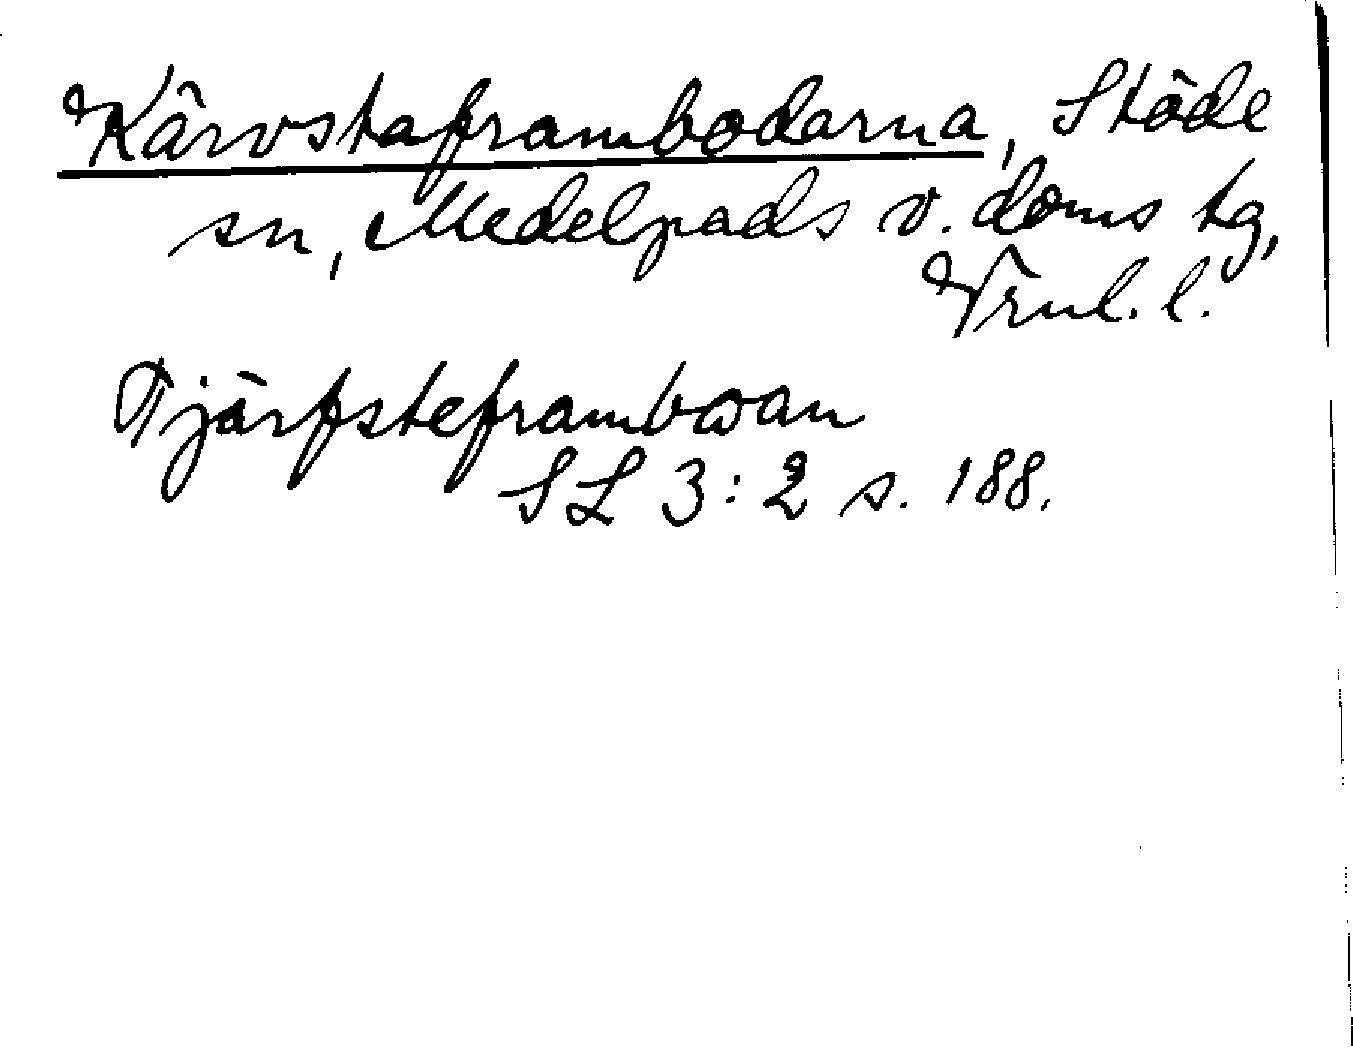 Kärvstaframbodarna, Stöde
sn, Medelpads v. doms tg,
Vrnl. l.
Tjärfsteframboan
SL 3:2 s. 188.